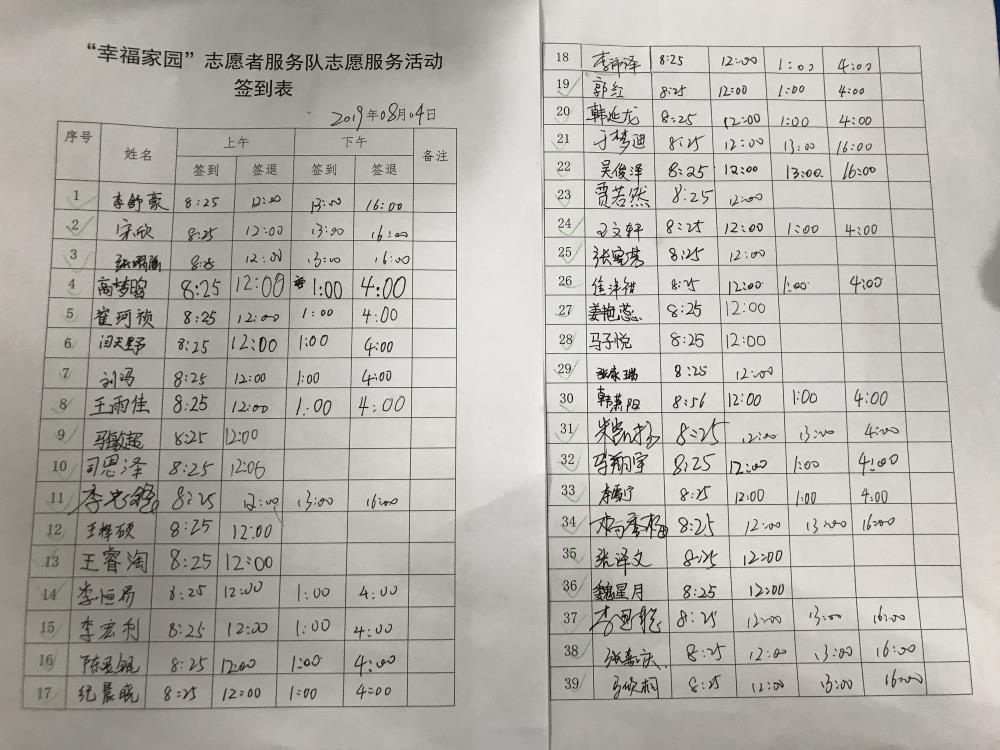 “幸福家园”志愿者服务队志愿服务活动
签到表
2019年08月04日
序号 姓名 上午 下午 备注
签到 签退 签到 签退
1 李舒豪 8:25 12:00 13:00 16:00
2 宋欣 8:25 12:00 13:00 16:00
3 8:25 12:00 13:00 16:00
4 高梦晗 8:25 12:00 1:00 4:00
5 崔珂祯 8:25 12:00 1:00 4:00
6 闫天野 8:25 12:00 1:00 4:00
7 刘冯 8:25 12:00 1:00 4:00
8 王雨佳 8:25 12:00 1:00 4:00
9 马敏超 8:25 12:00
10 司恩泽 8:25 12:06
11 8:25 12:00 13:00 16:00
12 王梓硕 8:25 12:00
13 王睿淘 8:25 12:00
14 李恒易 8:25 12:00 1:00 4:00
15 李宏利 8:25 12:00 1:00 4:00
16 陈亚锟 8:25 12:00 1:00 4:00
17 纪晨晓 8:25 12:00 1:00 4:00
18 8:25 12:00 1:00 4:00
19 郭红 8:25 12:00 1:00 4:00
20 韩延龙 8:25 12:00 1:00 4:00
21 于梦迪 8:25 12:00 13:00 16:00
22 吴俊泽 8:25 12:00 13:00 16:00
23 贾若然 8:25 12:00
24 王文轩 8:25 12:00 1:00 4:00
25 8:25 12:00
26 8:25 12:00 1:00 4:00
27 姜艳蕊 8:25 12:00
28 马子悦 8:25 12:00
29 张家瑞 8:25 12:00
30 韩萧阳 8:56 12:00 1:00 4:00
31 朱凯扬 8:25 12:00 13:00 4:00
32 马翔宇 8:25 12:00 1:00 4:00
33 8:25 12:00 1:00 4:00
34 8:25 12:00 13:00 16:00
35 张泽文 8:25 12:00
36 魏星月 8:25 12:00
37 8:25 12:00 13:00 16:00
38 张嘉庆 8:25 12:00 13:00 16:00
39 马欣桐 8:25 12:00 13:00 16:00